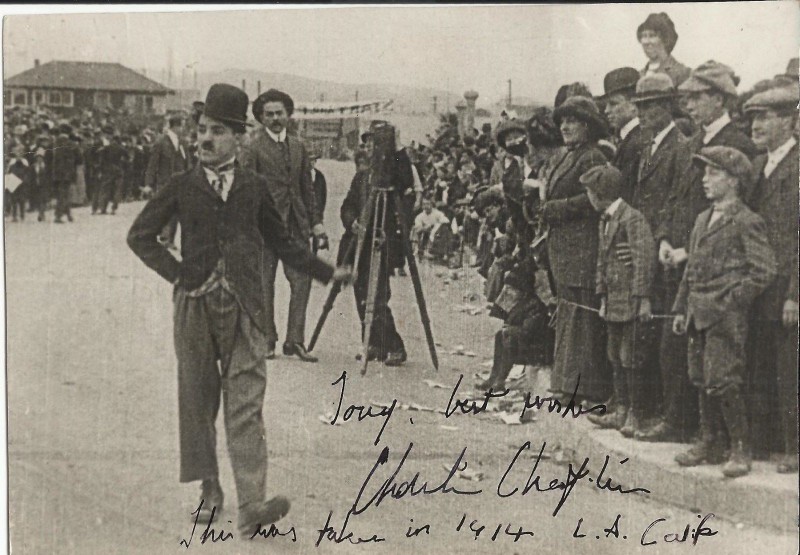 Tony, best wishes
Charlie Chaplin
This was taken in 1914 L.A. Calif